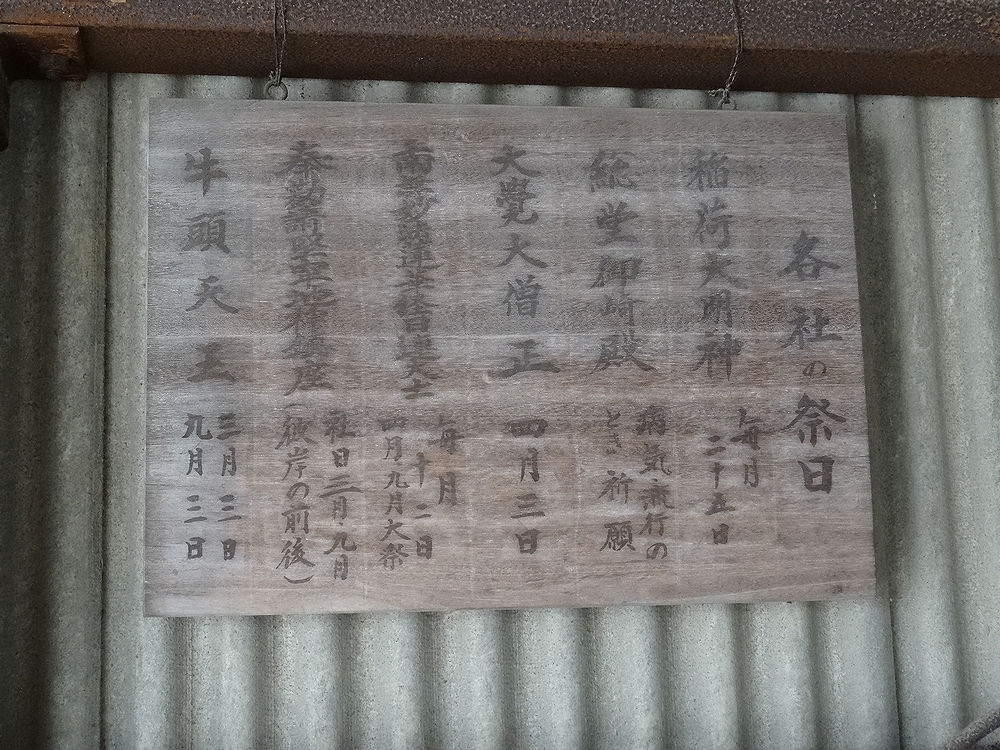 各社の祭日
稲荷大明神
毎月
二十五日
総堂御崎殿
病気・流行の
とき祈願
大覺大僧正
四月三日
南無妙法蓮華経日蓮大士
毎月
十二日
四月九月大祭
奉勧請堅牢地神
社日三月・九月
(彼岸の前後)
牛頭天王
三月三日
九月三日